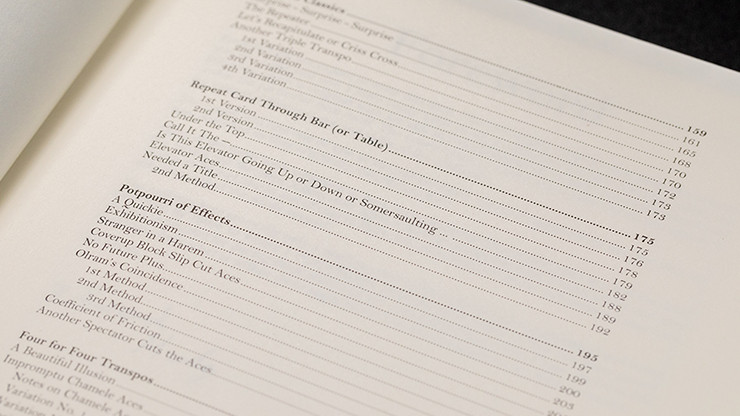 Classics 159
Surprise - Surprise 161
The Repeater 165
Let's Recapitulate or Criss Cross 168
Another Triple Transpo 170
1st Variation 170
2nd Variation 172
3rd Variation 173
4th Variation 173
Repeat Card Through Bar (or Table) 175
1st Version 175
2nd Version 176
Under the Top 178
Call It The — 179
Is This Elevator Going Up or Down or Somersaulting ... 182
Elevator Aces 188
Needed a Title 189
2nd Method 192
Potpourri of Effects 195
A Quickie 197
Exhibitionism 199
Stranger in a Harem 200
Coverup Block Slip Cut Aces 203
No Future Plus
Olram's Coincidence
1st Method
2nd Method
3rd Method
Coefficient of Friction
Another Spectator Cuts the Aces
Four for Four Transpos
A Beautiful Illusion
Impromptu Chamele Aces
Notes on Chamele Aces
Variation No.
Variation